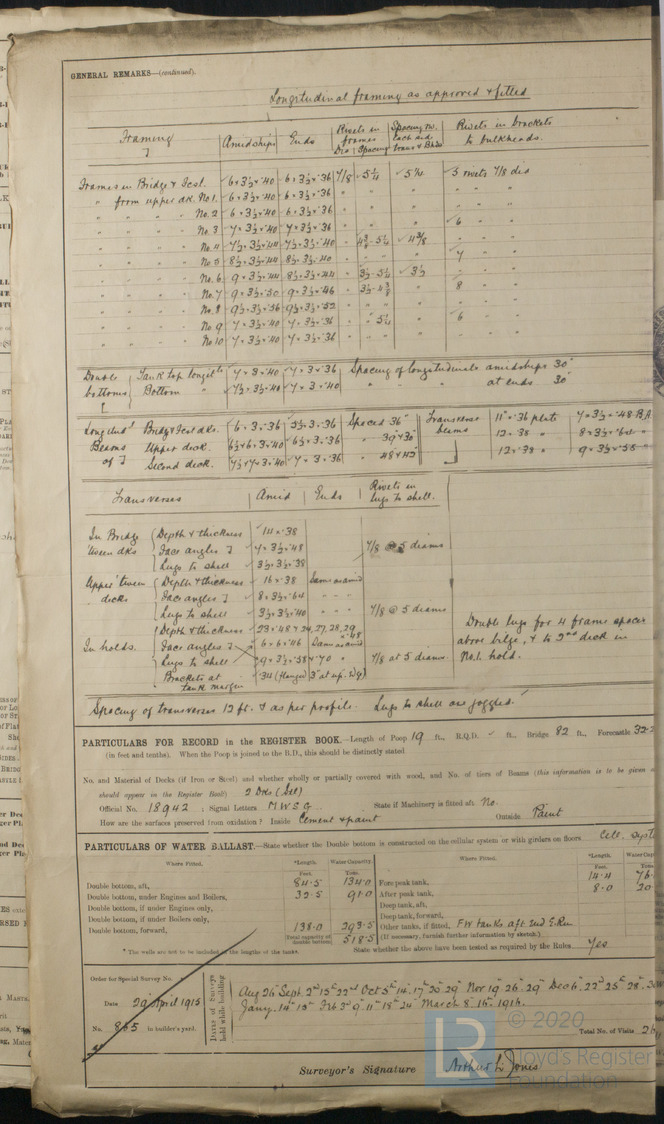 GENERAL REMARKS—(continued).
Longitudinal framing as approved & fitted
Framing Amidships Ends Rivets in frames Dia Spacing Spacing rw. each end trans & Bhds Rivets in brackets to bulkheads.
Frames in Bridge & Fcsl. 6 × 3½ × .40 6 × 3½ × .36 7/8 5¼ 5¼ 5 rivets 7/8 dia
" from upper dk. No.1. 6 × 3½ × .40 6 × 3½ × .36 " " " " " "
" " " " No.2 6 × 3½ × .40 6 × 3½ × .36 " " " " " "
" " " " No.3 7 × 3½ × .40 7 × 3½ × .36 " " " 6 " "
" " " " No.4 7½ × 3½ × .44 7½ × 3½ × .40 " 4⅜ - 5¼ 4⅜ " " "
" " " " No 5 8½ × 3½ × .44 8½ × 3½ × .40 " " " 7 " "
" " " " No.6 9 × 3½ × .44 8½ × 3½ × .44 " 3½ - 5¼ 3½ " " "
" " " " No.7 9 × 3½ × .50 9 × 3½ × .46 " 3½ - 4⅜ " 8 " "
" " " " No.8 9½ × 3½ × .56 9½ × 3½ × .52 " " " " " "
" " " " No 9 7 × 3½ × .40 7 × 3½ × .36 " 5¼ " 6 " "
" " " " No 10 7 × 3½ × .40 7 × 3½ × .36 " " " " " "
Double Tank top longitls 7 × 3 × .40 7 × 3 × .36 Spacing of longitudinals amidships 30"
bottoms Bottom " 7½ × 3½ × .40 7 × 3 × .40 " " " at ends 30"
Longitudl Bridge & Fcsl dks. 6 × 3 × .36 5½ × 3 × .36 Spaced 36" Transverse 11" × .36 plate 7 × 3½ × .48 B.A
Beams Upper deck. 6½ × 3 × .40 6½ × 3 × .36 " 30 & 30" beams 12 × .38 "
of Second deck. 7 × 3 × .40 7 × 3 × .36 " 12 × .38 " 9 × 3½ × .58 "
Transverses Amid Ends Rivets in lugs to shell.
In Bridge Depth & thickness 14 × .38
'tween dks Face angles 7 × 3½ × .48 7/8 @ 5 diams
Lugs to shell 3½ × 3½ × .38
Upper 'tween Depth & thickness 16 × .38 Same as amid
decks Face angles 8 × 3½ × .64 " " "
Lugs to shell 3½ × 3½ × .40 " " " 7/8 @ 5 diams
Depth & thickness 23 × .48 & 24, 27, 28, 29 × .48
In holds. Face angles 6 × 6 × .46 Same as amid
Lugs to shell 9 × 3½ × .58 × .70 " 7/8 at 5 diams
Brackets at tank margin .34 (flanged 3" at up. edg)
Double lugs for 4 frame spaces
above bilge, & to 2nd deck in
No.1. hold.
Spacing of transverses 12 ft. & as per profile. Lugs to shell are joggled.
PARTICULARS FOR RECORD in the REGISTER BOOK.—Length of Poop 19 ft., R.Q.D. - ft., Bridge 82 ft., Forecastle 32.
(in feet and tenths). When the Poop is joined to the B.D., this should be distinctly stated
No. and Material of Decks (if Iron or Steel) and whether wholly or partially covered with wood, and No. of tiers of Beams (this information is to be given
should appear in the Register Book) 2 Dks (Stl)
Official No. 18942 ; Signal Letters M W S G . State if Machinery is fitted aft No.
How are the surfaces preserved from oxidation? Inside Cement & paint Outside Paint
PARTICULARS OF WATER BALLAST.—State whether the Double bottom is constructed on the cellular system or with girders on floors
Where Fitted. *Length. Water Capacity Where Fitted. *Length. Water Cap
Feet. Tons. Feet. Tons
Double bottom, aft, 84.5 134.0 Fore peak tank, 14.4 76.
Double bottom, under Engines and Boilers, 32.5 91.0 After peak tank, 8.0 20
Double bottom, if under Engines only, Deep tank, aft,
Double bottom, if under Boilers only, Deep tank, forward,
Double bottom, forward, 138.0 293.5 Other tanks, if fitted, FW tanks aft end E.Rm
Total capacity of double bottom 518.5 (If necessary, furnish further information by sketch.)
* The wells are not to be included in the lengths of the tanks. State whether the above have been tested as required by the Rules Yes
Order for Special Survey No.
Date 29 April 1915
No. 865 in builder's yard.
Dates of Surveys held while building
Aug 26 Sept. 2nd 15th 22nd Oct 5th 14. 17. 20. 29. Nov 19. 26. 29. Dec 6. 22. 25. 28.
Jany. 14. 15. Feb 2. 9. 11. 18. 24. March 8. 16. 1916.
Total No. of Visits
Surveyor's Signature Arthur L. Jones
© 2020
Lloyd's Register
Foundation
LR